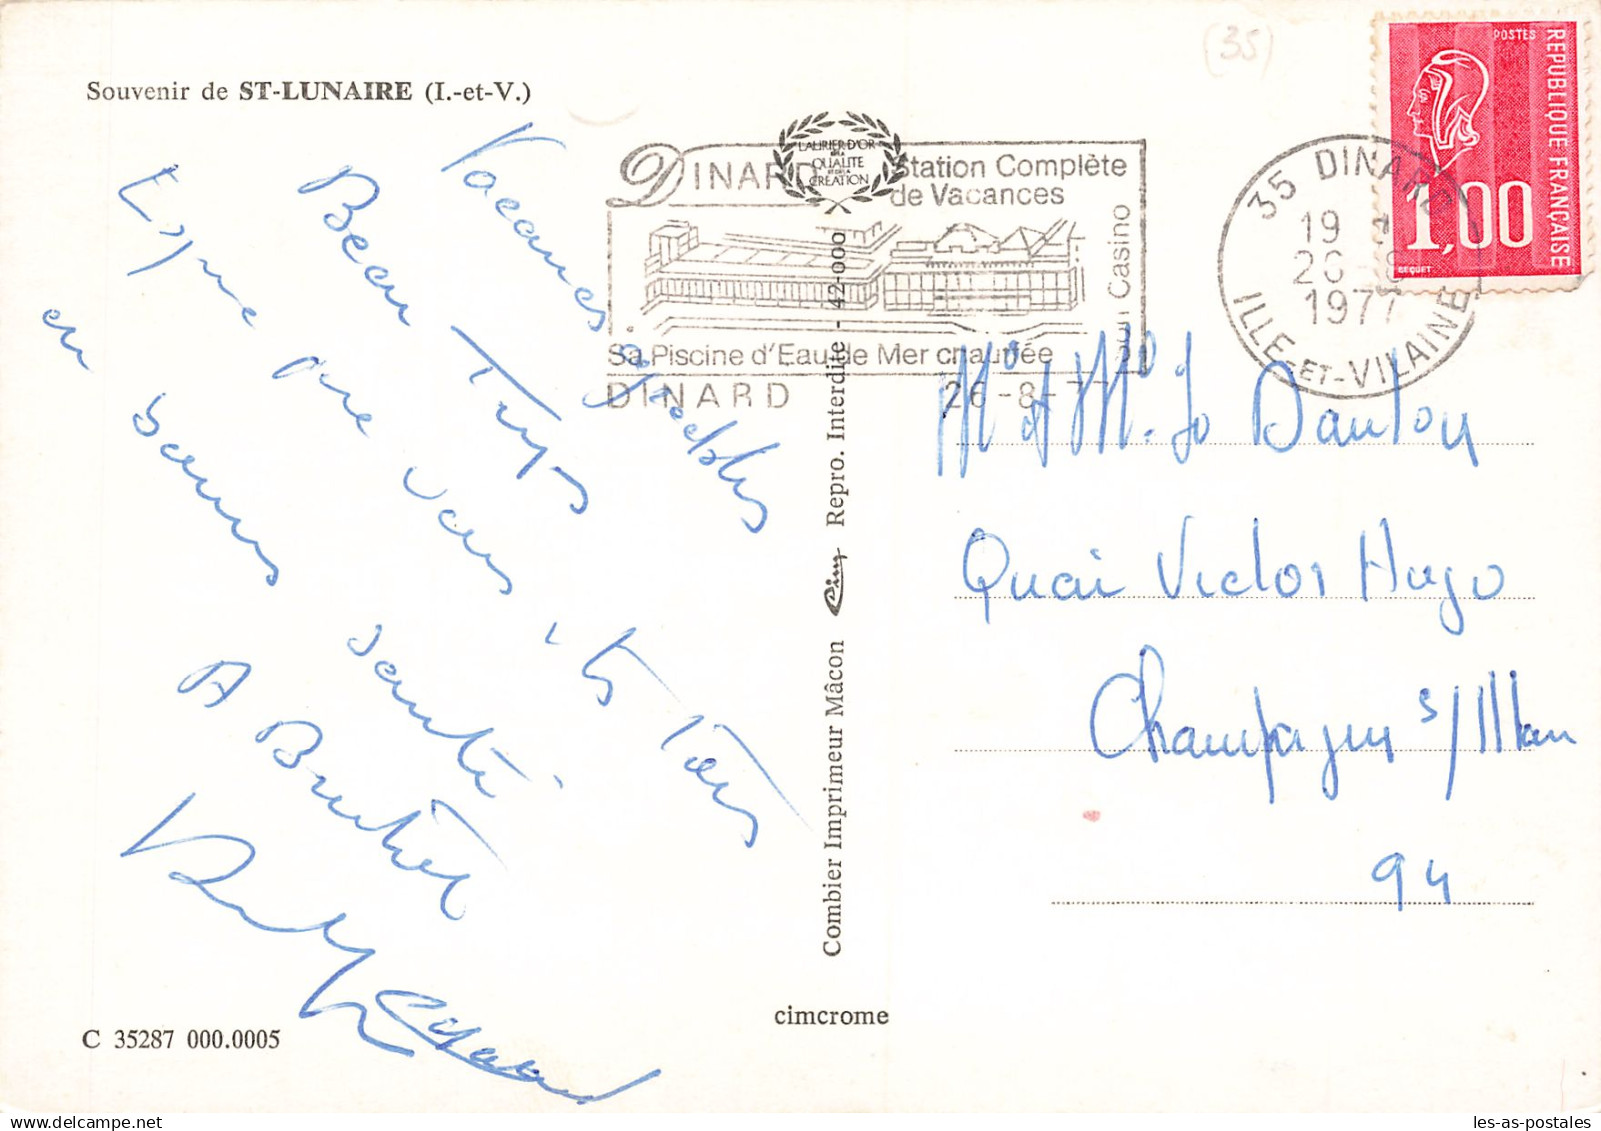 Souvenir de ST-LUNAIRE (I.-et-V.)
Vacances agréables
Beau Temps
Espère que vous êtes tous
en bonne santé
A Bientôt
C 35287 000.0005
Combier Imprimeur Mâcon Cim Repro. Interdite - 42-000
cimcrome
LAURIER D'OR
DE LA
QUALITE
ET DE LA
CREATION
DINARD Station Complète
de Vacances
Son Casino
Sa Piscine d'Eau de Mer chauffée
DINARD 26-8-77
35 DINARD
19
26-8
1977
ILLE-ET-VILAINE
POSTES
REPUBLIQUE FRANÇAISE
1,00
BEQUET
(35)
Mr et Me. Jo Danton
Quai Victor Hugo
Champigny s/Marne
94
les-as-postales